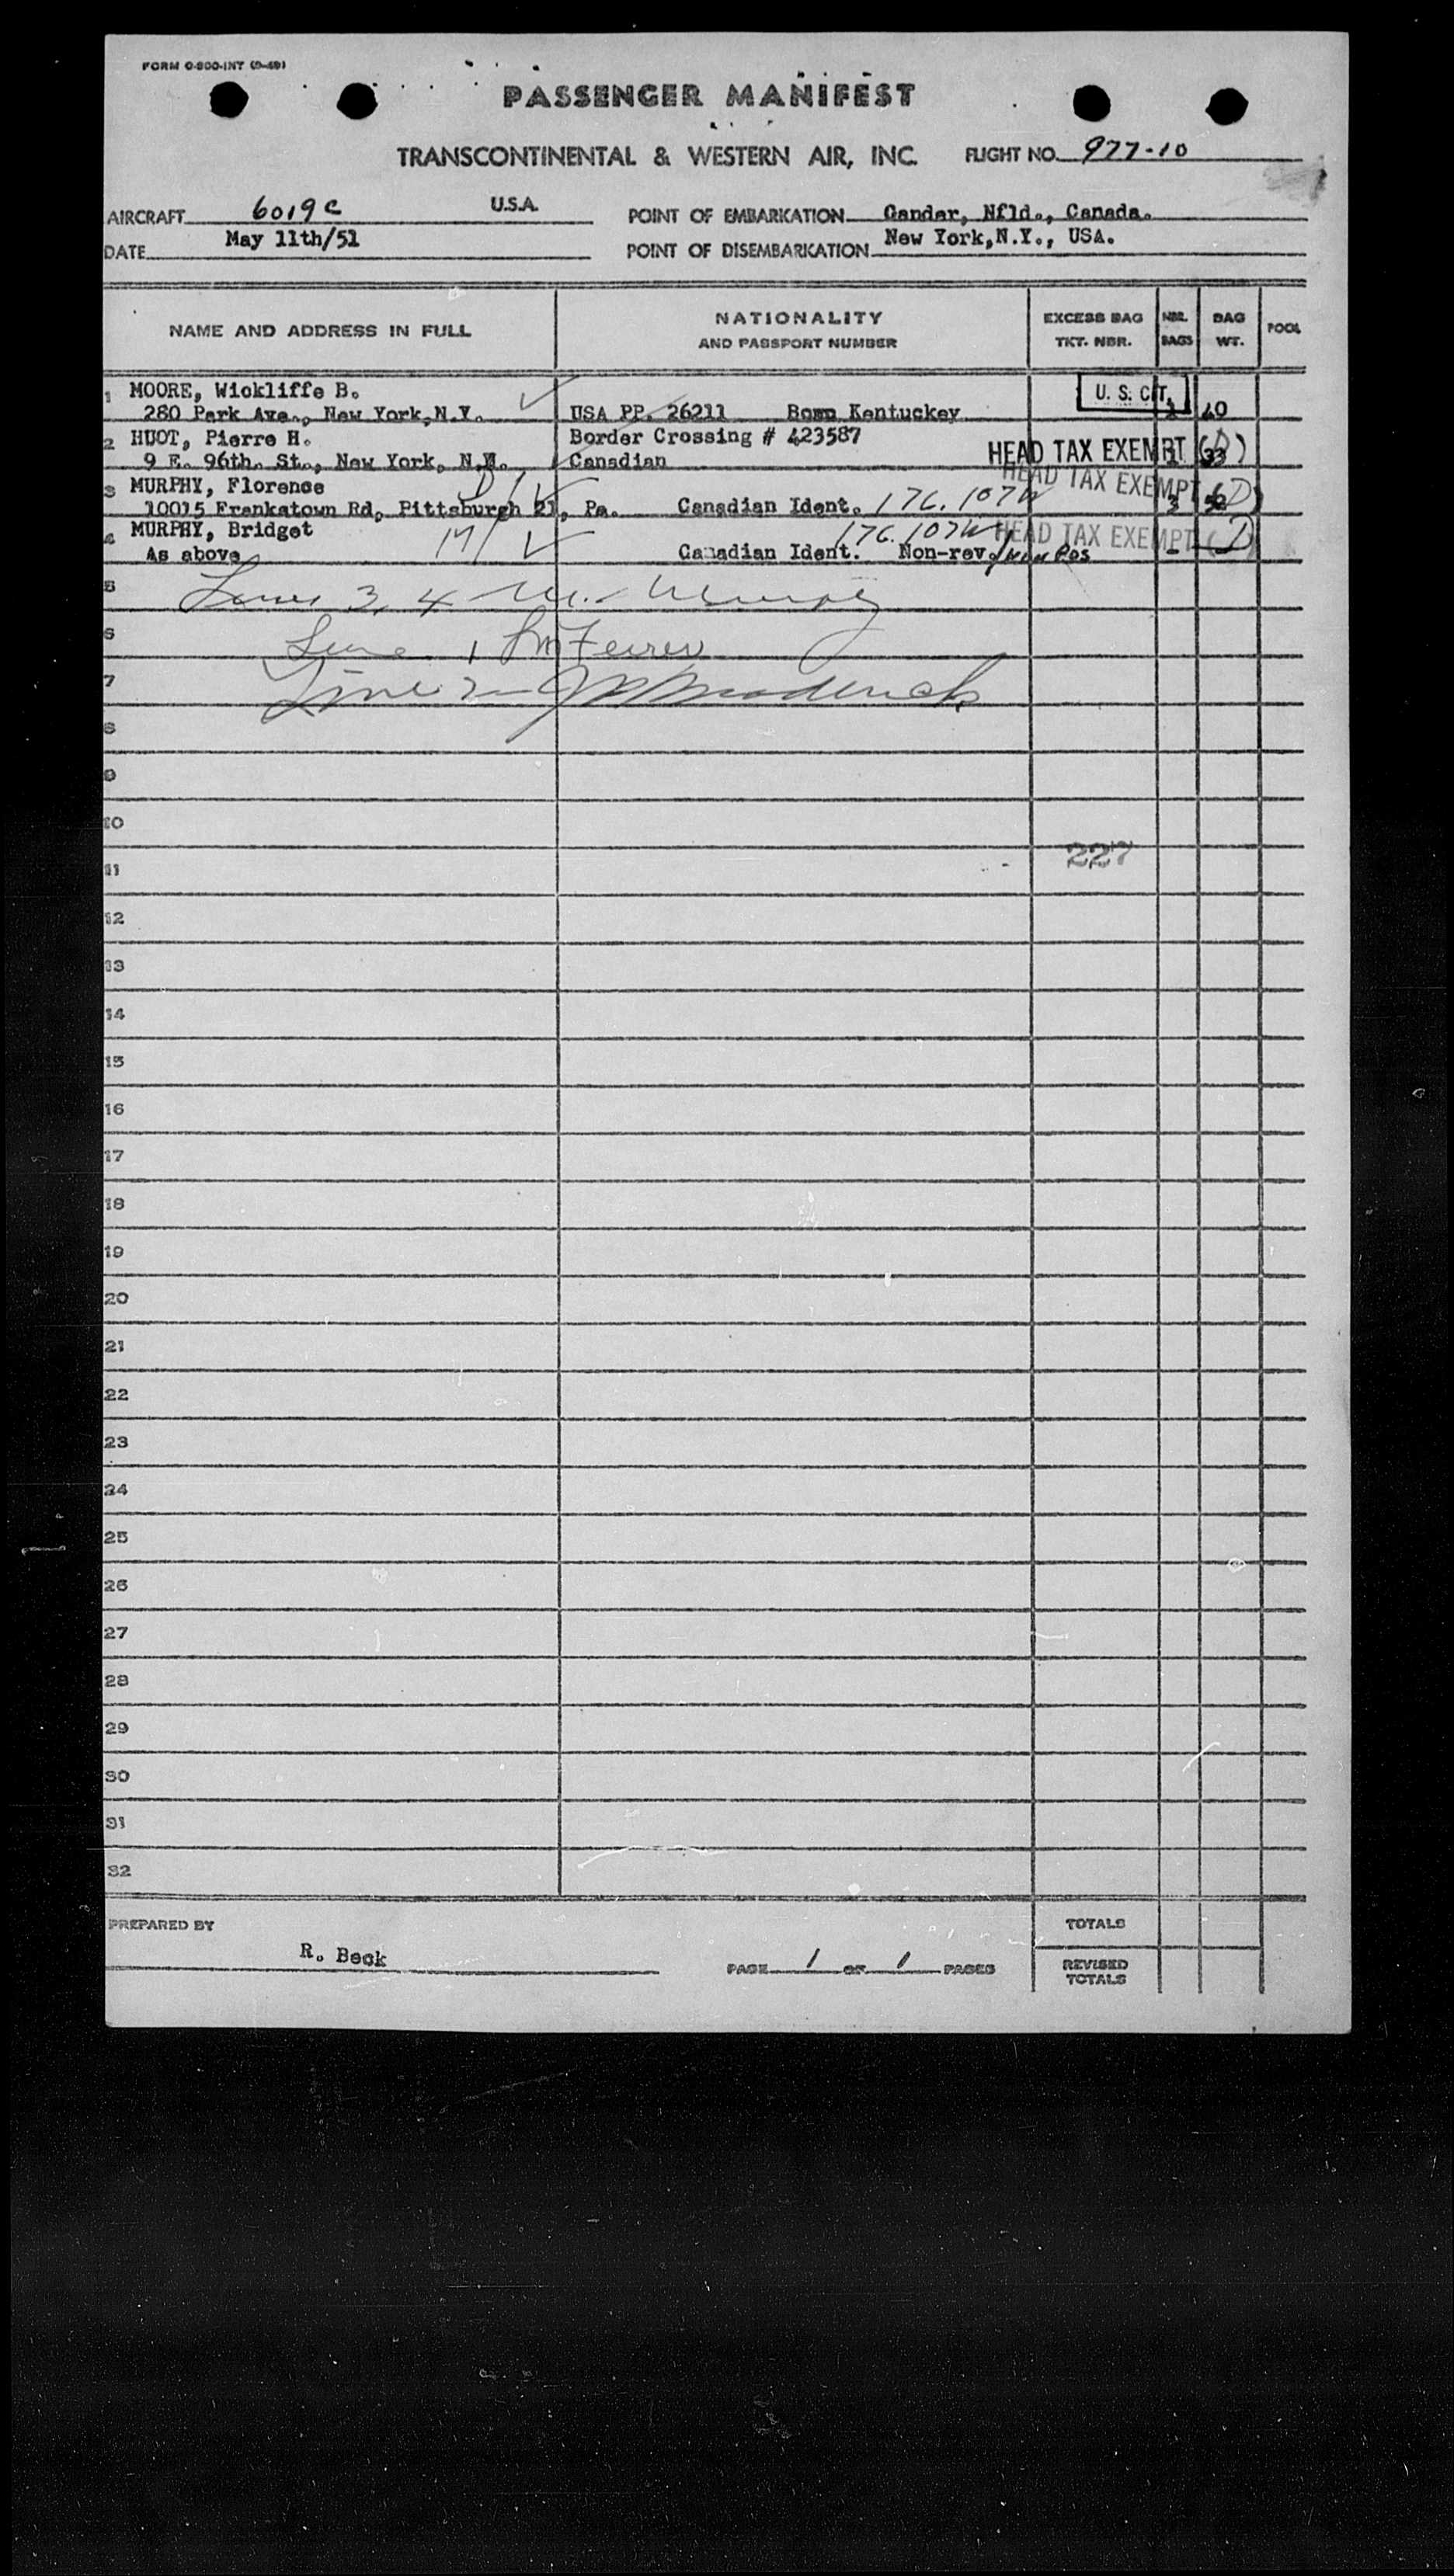 FORM O-800-INT (9-49)
PASSENGER MANIFEST
TRANSCONTINENTAL & WESTERN AIR, INC. FLIGHT NO. 977-10
AIRCRAFT 6019C U.S.A. POINT OF EMBARKATION Gander, Nfld., Canada.
DATE May 11th/51 POINT OF DISEMBARKATION New York,N.Y., USA.
NAME AND ADDRESS IN FULL NATIONALITY AND PASSPORT NUMBER EXCESS BAG TKT. NBR. NBR. BAGS BAG WT. POOL
1 MOORE, Wickliffe B. U. S. CIT.
280 Park Ave., New York,N.Y. USA PP. 26211 Born Kentucky 40
2 HUOT, Pierre H. Border Crossing # 423587
9 E. 96th. St., New York, N.Y. Canadian HEAD TAX EXEMPT (D) 33
3 MURPHY, Florence D/ HEAD TAX EXEMPT (D)
10015 Frankstown Rd, Pittsburgh 21, Pa. Canadian Ident. 176.107
4 MURPHY, Bridget M/ 176.107 HEAD TAX EXEMPT (D)
As above Canadian Ident. Non-rev.
5 3, 4
6 Line 1
7 Line 2 Broderick
8
9
10
11 227
12
13
14
15
16
17
18
19
20
21
22
23
24
25
26
27
28
29
30
31
32
PREPARED BY R. Beck PAGE 1 OF 1 PAGES TOTALS
REVISED TOTALS